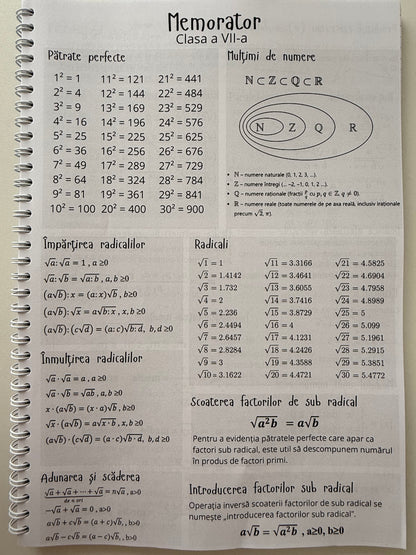 Memorator
Clasa a VII-a
Pătrate perfecte
1² = 1 11² = 121 21² = 441
2² = 4 12² = 144 22² = 484
3² = 9 13² = 169 23² = 529
4² = 16 14² = 196 24² = 576
5² = 25 15² = 225 25² = 625
6² = 36 16² = 256 26² = 676
7² = 49 17² = 289 27² = 729
8² = 64 18² = 324 28² = 784
9² = 81 19² = 361 29² = 841
10² = 100 20² = 400 30² = 900
Mulțimi de numere
ℕ ⊂ ℤ ⊂ ℚ ⊂ ℝ
N Z Q R
• ℕ – numere naturale (0, 1, 2, 3, ...).
• ℤ – numere întregi (... –2, –1, 0, 1, 2 ...).
• ℚ – numere raționale (fracții p/q cu p, q ∈ ℤ, q ≠ 0).
• ℝ – numere reale (toate numerele de pe axa reală, inclusiv iraționale
precum √2, π).
Împărțirea radicalilor
√a : √a = 1 , a ≥0
√a : √b = √a : b , a, b ≥0
(a√b) : x = (a : x)√b , b≥0
(a√b) : √x = a√b : x , x, b≥0
(a√b) : (c√d) = (a : c)√b : d, b, d ≥0
Radicali
√1 = 1 √11 = 3.3166 √21 = 4.5825
√2 = 1.4142 √12 = 3.4641 √22 = 4.6904
√3 = 1.732 √13 = 3.6055 √23 = 4.7958
√4 = 2 √14 = 3.7416 √24 = 4.8989
√5 = 2.236 √15 = 3.8729 √25 = 5
√6 = 2.4494 √16 = 4 √26 = 5.099
√7 = 2.6457 √17 = 4.1231 √27 = 5.1961
√8 = 2.8284 √18 = 4.2426 √28 = 5.2915
√9 = 3 √19 = 4.3588 √29 = 5.3851
√10 = 3.1622 √20 = 4.4721 √30 = 5.4772
Înmulțirea radicalilor
√a · √a = a , a ≥0
√a · √b = √ab , a, b ≥0
x · (a√b) = (x · a)√b , b≥0
√x · (a√b) = a√x · b , x, b≥0
(a√b) · (c√d) = (a · c)√b · d, b, d ≥0
Scoaterea factorilor de sub radical
√a²b = a√b
Pentru a evidenția pătratele perfecte care apar ca
factori sub radical, este util să descompunem numărul
în produs de factori primi.
Adunarea și scăderea
√a + √a + ⋯ + √a = n√a , a>0
de n ori
-√a + √a = 0 , a>0
a√b + c√b = (a + c)√b, , b>0
a√b – c√b = (a – c)√b, , b>0
Introducerea factorilor sub radical
Operația inversă scoaterii factorilor de sub radical se
numește „introducerea factorilor sub radical".
a√b = √a²b , a≥0, b≥0